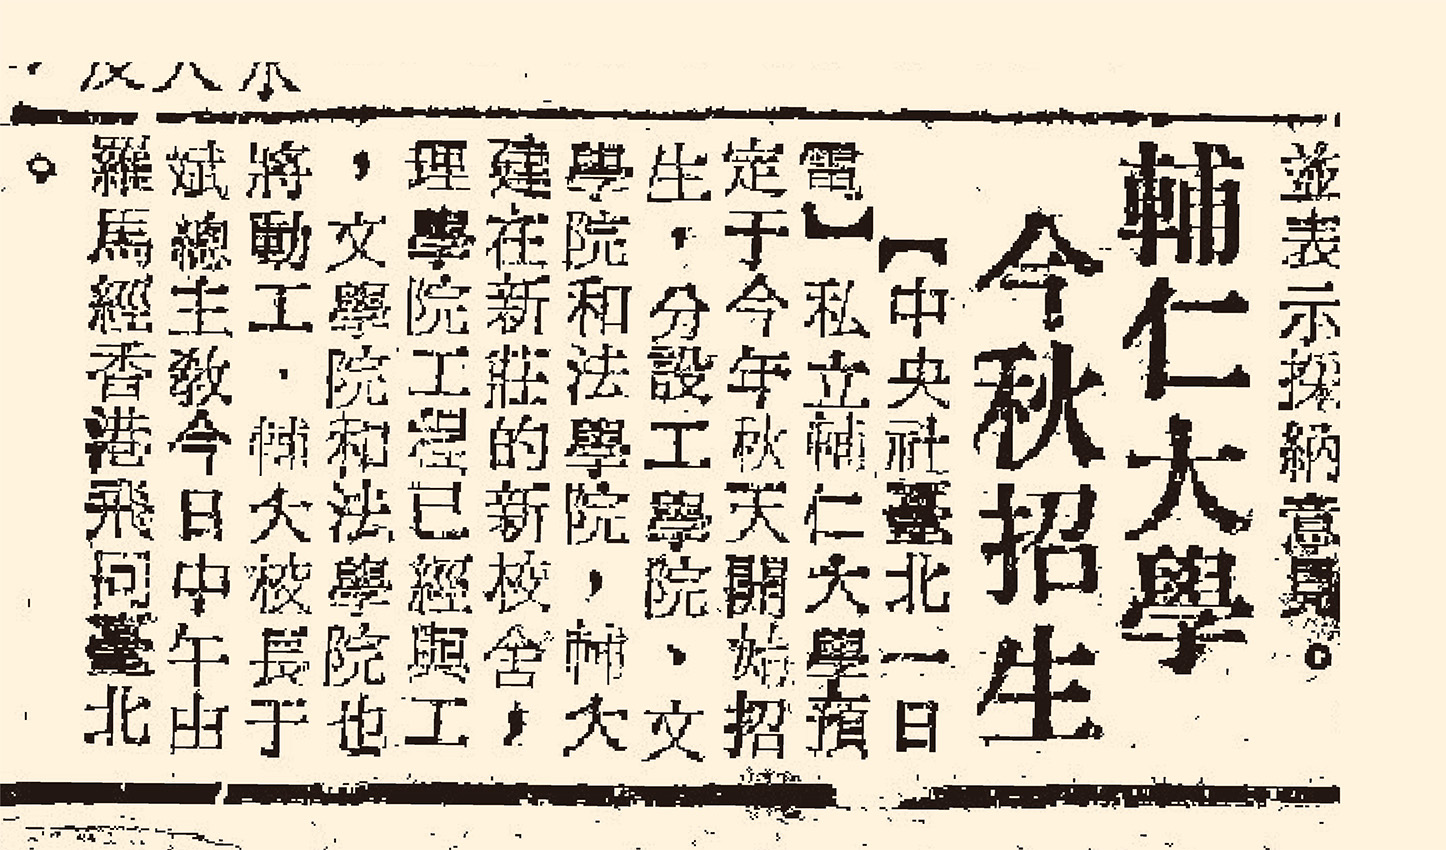 並表示採納意見。
輔仁大學
今秋招生
【中央社臺北一日
電】私立輔仁大學預
定于今年秋天開始招
生,分設工學院、文
學院和法學院,輔大
建在新莊的新校舍,
理學院工程已經興工
,文學院和法學院也
將動工.輔大校長于
斌總主教今日中午由
羅馬經香港飛回臺北
。